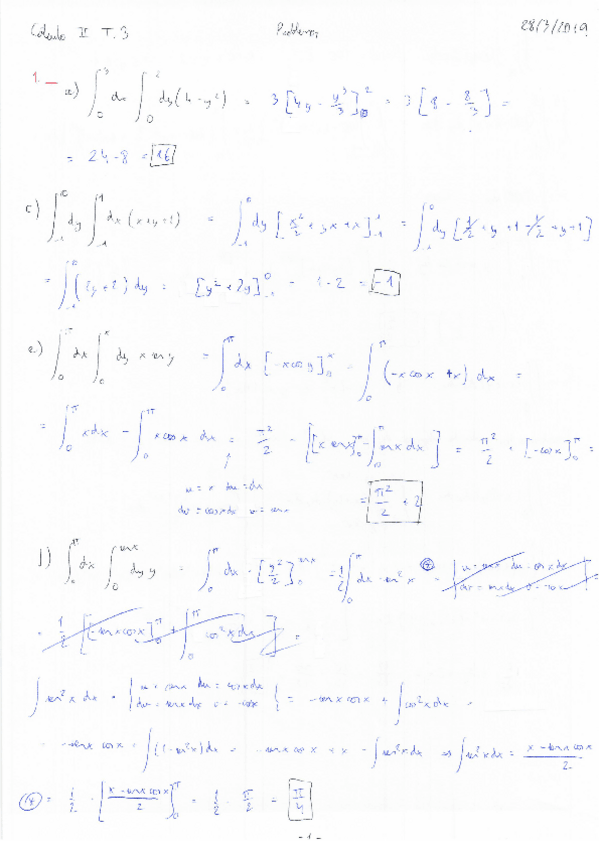 Cálculo II T.3 Problemas 28/3/2019
1.- a) ∫₀³ dx ∫₀² dy (4 - y²) = 3 [4y - y³/3]₀² = 3 [8 - 8/3] =
= 24 - 8 = 16
c) ∫₋₁⁰ dy ∫₋₁¹ dx (x + y + 1) = ∫₋₁⁰ dy [x²/2 + yx + x]₋₁¹ = ∫₋₁⁰ dy [1/2 + y + 1 - 1/2 + y + 1]
= ∫₋₁⁰ (2y + 2) dy = [y² + 2y]₋₁⁰ = 1 - 2 = -1
e) ∫₀^π dx ∫₀^x dy x sen y = ∫₀^π dx [-x cos y]₀^x = ∫₀^π (-x cos x + x) dx =
= ∫₀^π x dx - ∫₀^π x cos x dx = π²/2 - [[x sen x]₀^π - ∫₀^π sen x dx] = π²/2 + [-cos x]₀^π =
u = x du = dx
dv = cos x dx v = sen x = π²/2 + 2
f) ∫₀^π dx ∫₀^(sen x) dy y = ∫₀^π dx · [y²/2]₀^(sen x) = 1/2 ∫₀^π dx · sen² x = | u = sen x du = cos x dx
dv = sen x dx v = -cos x | =
= 1/2 [[-sen x cos x]₀^π + ∫₀^π cos² x dx] =
∫ sen² x dx = { u = sen x du = cos x dx
dv = sen x dx v = -cos x } = -sen x cos x + ∫ cos² x dx =
= -sen x cos x + ∫ (1 - sen² x) dx = -sen x cos x + x - ∫ sen² x dx ⇔ ∫ sen² x dx = (x - sen x cos x)/2
= 1/2 · [(x - sen x cos x)/2]₀^π = 1/2 · π/2 = π/4
-1-